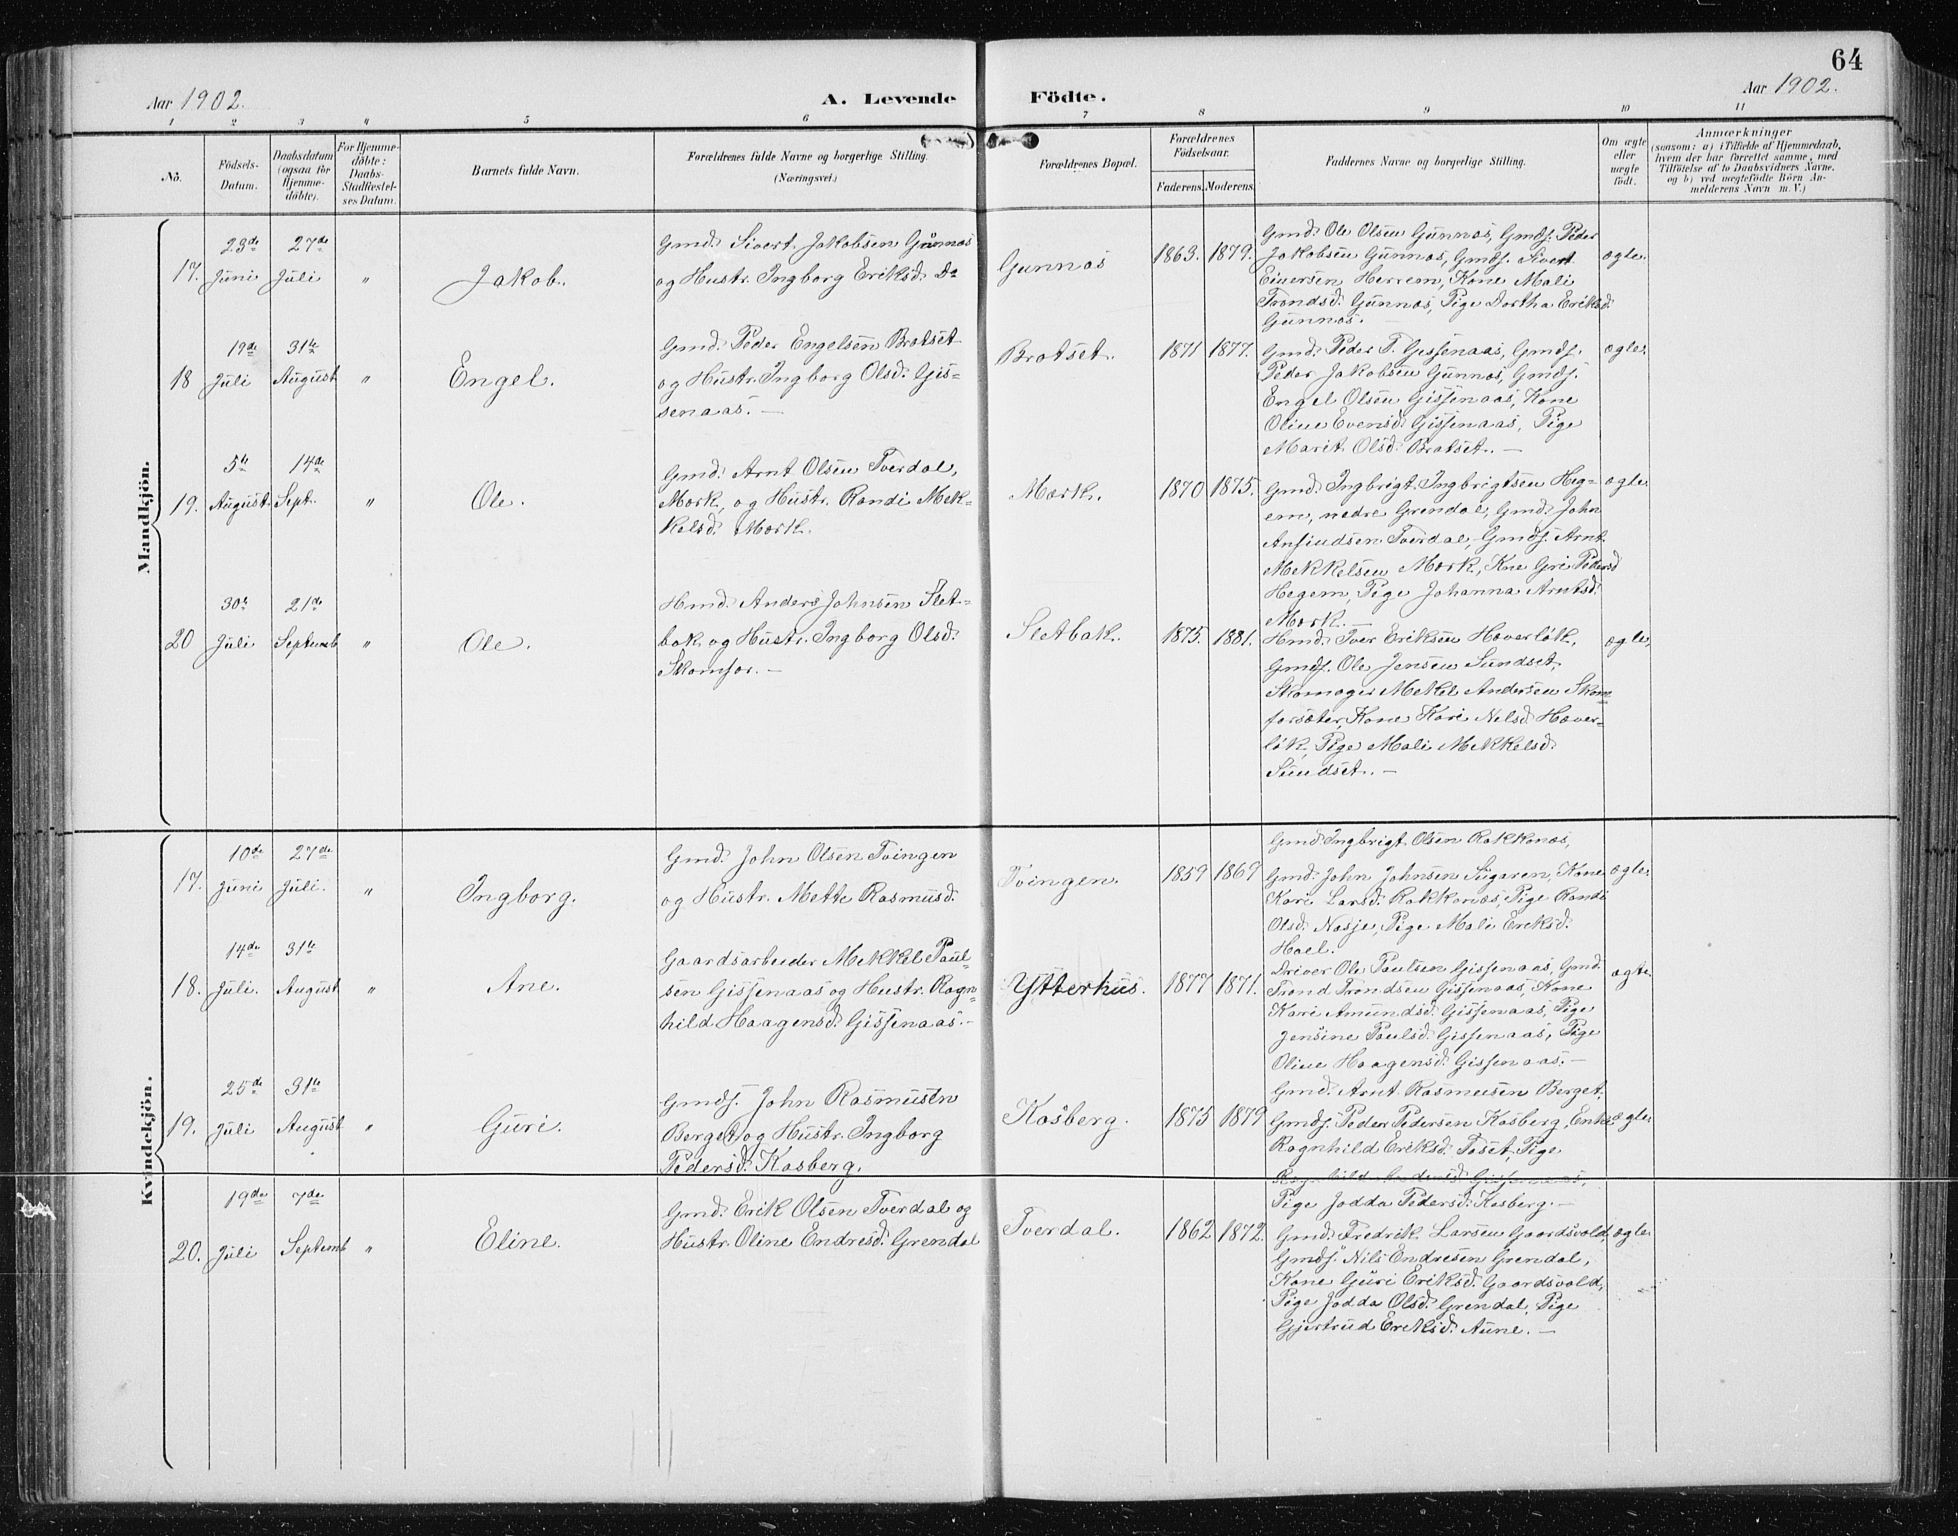 64
Aar 1902.
A. Levende Födte.
Aar 1902.
1 2 3 4 5 6 7 8 9 10 11
No.
Födsels-
Datum.
Daabsdatum
(ogsaa for
Hjemme-
døbte).
For Hjemme-
døbte:
Daabs-
Stadfestel-
ses Datum.
Barnets fulde Navn.
Forældrenes fulde Navne og borgerlige Stilling.
(Næringsvei.)
Forældrenes Bopæl.
Forældrenes
Födselsaar.
Faderens. Moderens.
Faddernes Navne og borgerlige Stilling.
Om ægte
eller
uægte
født.
Anmærkninger
(saasom: a) i Tilfælde af Hjemmedaab,
hvem der har forrettet samme, med
Tilföielse af to Daabsvidners Navne,
og b) ved uægtefödte Börn An-
melderens Navn m. V.)
Mandkjön.
17. 23de Juni
27de Juli
"
Jakob.
Gmd. Sivert Jakobsen Gunnæs
og Hustr. Ingborg Eriksd. Do
Gunnæs
1863. 1879.
Gmd. Ole Olsen Gunnæs, Gmds. Peder
Jakobsen Gunnæs, Gmds. Sivert
Einersen Herrem, Kone Mali
Trondsd. Gunnæs, Pige Dortha Eriksd.
Gunnæs.
ægte.
18 19de Juli
31te August
"
Engel.
Gmd. Peder Engelsen Bratset
og Hustr. Ingborg Olsd. Gis-
senaas. —
Bratset.
1871 1877.
Gmd. Peder T. Gissenaas, Gmds.
Peder Jakobsen Gunnæs, Gmds.
Engel Olsen Gissenaas, Kone
Oline Evensd. Gissenaas, Pige
Marit Olsd. Bratset. —
ægte.
19. 5te August.
14de Sept.
"
Ole.
Gmd. Arnt Olsen Tverdal,
Mærk, og Hustr. Randi Mek-
kelsd. Mærk.
Mærk.
1870 1875.
Gmd. Ingbrigt Ingbrigtsen Heg-
em, nedre Grendal, Gmd. John
Anfindsen Tverdal, Gmds. Arnt
Mekkelsen Mærk, Kne Gri Pedersd
Hegem, Pige Johanna Arntsd.
Mærk. —
ægte.
20 30te Juli
21de Septemb
"
Ole.
Hmd. Anders Johnsen Slet-
bak og Hustr. Ingborg Olsd.
Skomfor. —
Sletbak.
1875. 1881.
Hmd. Iver Eriksen Haverløk,
Gmds. Ole Jensen Sundset,
Skomager Mekel Andersen Skom-
forsæter, Kone Kari Nelsd. Haver-
løk, Pige Mali Mekkelsd.
Sundset. —
ægte,
Kvindekjön.
17. 10de Juni
27de Juli.
"
Ingborg.
Gmd. John Olsen Tvingen
og Hustr. Mette Rasmusd.
Tvingen.
1859 1869
Gmd Ingbrigt Olsen Rakknæs,
Gmd. John Johnsen Sugaren, Kone
Kari Larsd. Rakknæs, Pige Randi
Olsd. Nasje, Pige Mali Eriksd.
Hoel.
ægte.
18. 14de Juli.
31te August
"
Ane.
Gaardsarbeider Mekkel Paul-
sen Gissenaas og Hustr. Ragn-
hild Haagensd. Gissenaas. —
Ytterhus.
1877 1871.
Driver Ole Paulsen Gissenaas, Gmd.
Trond Trondsen Gissenaas, Kone
Kari Amundsd. Gissenaas, Pige
Jensine Paulsd. Gissenaas, Pige
Oline Haagensd. Gissenaas. —
ægte.
19. 25de Juli
31te August
"
Guri.
Gmds. John Rasmusen
Berget og Hustr. Ingborg
Pedersd. Kasberg.
Kasberg.
1875 1879
Gmd. Arnt Rasmusen Berget,
Gmds. Peder Pedersen Kasberg, Enke
Ragnhild Eriksd. Tøset, Pige
Gissenaas,
Pige Jodda Pedersd. Kasberg. —
ægte
20. 19de Juli
7de Septemb
"
Eline.
Gmd. Erik Olsen Tverdal og
Hustr. Oline Endresd. Grendal
Tverdal.
1862 1872.
Gmd. Fredrik Larsen Gaardsvold,
Gmds. Nils Endresen Grendal,
Kone Guri Eriksd. Gaardsvold,
Pige Jodda Olsd. Grendal, Pige
Gjertrud Eriksd. Aune. —
ægte